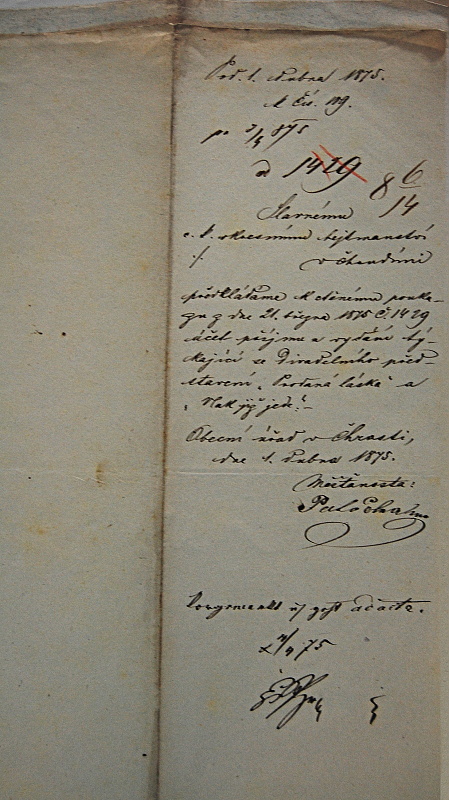 Pod. 1. dubna 1875.
k Čís. 119.
pr 3/4 875
ad 1429
8 6/14
Slavnému
c. k. okresnímu hejtmanství
./. v Chrudimi
předkládáme k ctěnému pouka-
zu z dne 21. března 1875 č 1429
účet příjmu a vydání tý-
kající se divadelního před-
stavení „Prodaná láska" a
„Vlak již jede!"
Obecní úřad v Chrasti,
dne 1. dubna 1875.
Měšťanosta:
4/4 75